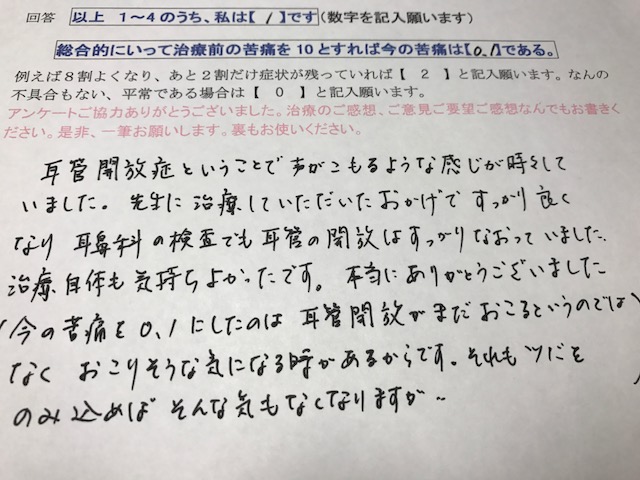 回答 以上 1～4のうち、私は【 1 】です(数字を記入願います)
総合的にいって治療前の苦痛を10とすれば今の苦痛は【0.1】である。
例えば8割よくなり、あと2割だけ症状が残っていれば【 2 】と記入願います。なんの
不具合もない、平常である場合は【 0 】と記入願います。
アンケートご協力ありがとうございました。治療のご感想、ご意見ご要望ご感想なんでもお書きく
ださい。是非、一筆お願いします。裏もお使いください。
耳管開放症ということで声がこもるような感じが時々して
いました。先生に治療していただいたおかげですっかり良く
なり耳鼻科の検査でも耳管の開放はすっかりなおっていました。
治療自体も気持ちよかったです。本当にありがとうございました
(今の苦痛を0,1にしたのは耳管開放がまだおこるというのでは
なくおこりそうな気になる時があるからです。それもツバを
のみ込めばそんな気もなくなりますが‥)